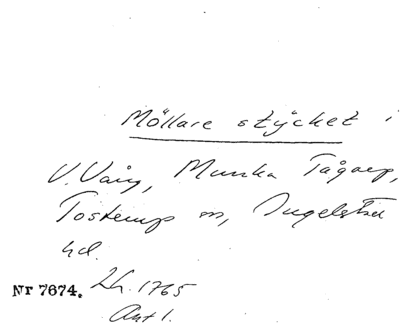 Möllare stycket i
V. Vång, Munka Tågarp,
Tosterup sn, Ingelstad
hd.
Nr 7674. Lh. 1765
Akt 1.